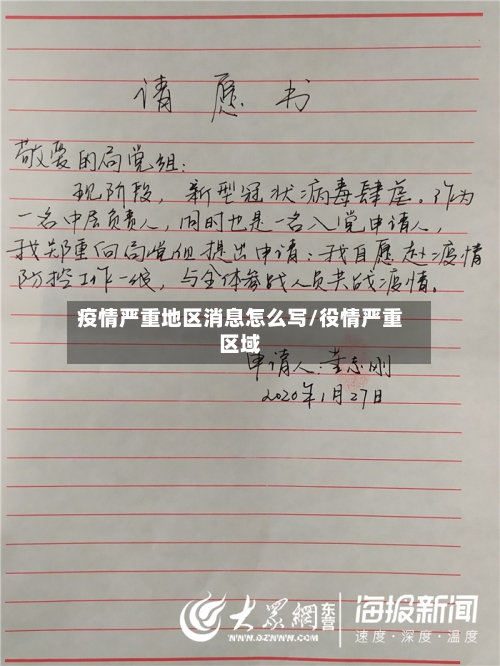 请愿书
敬爱的局党组:
现阶段,新型冠状病毒肆虐。作为
一名中层负责人,同时也是一名入党申请人,
我郑重向局党组提出申请:我自愿赴疫情
防控工作一线,与全体参战人员共战疫情。
疫情严重地区消息怎么写/役情严重
区域
申请人:董志刚
2020年1月27日
大众網 东营 海报新闻
www.dzwww.com 速度·深度·温度